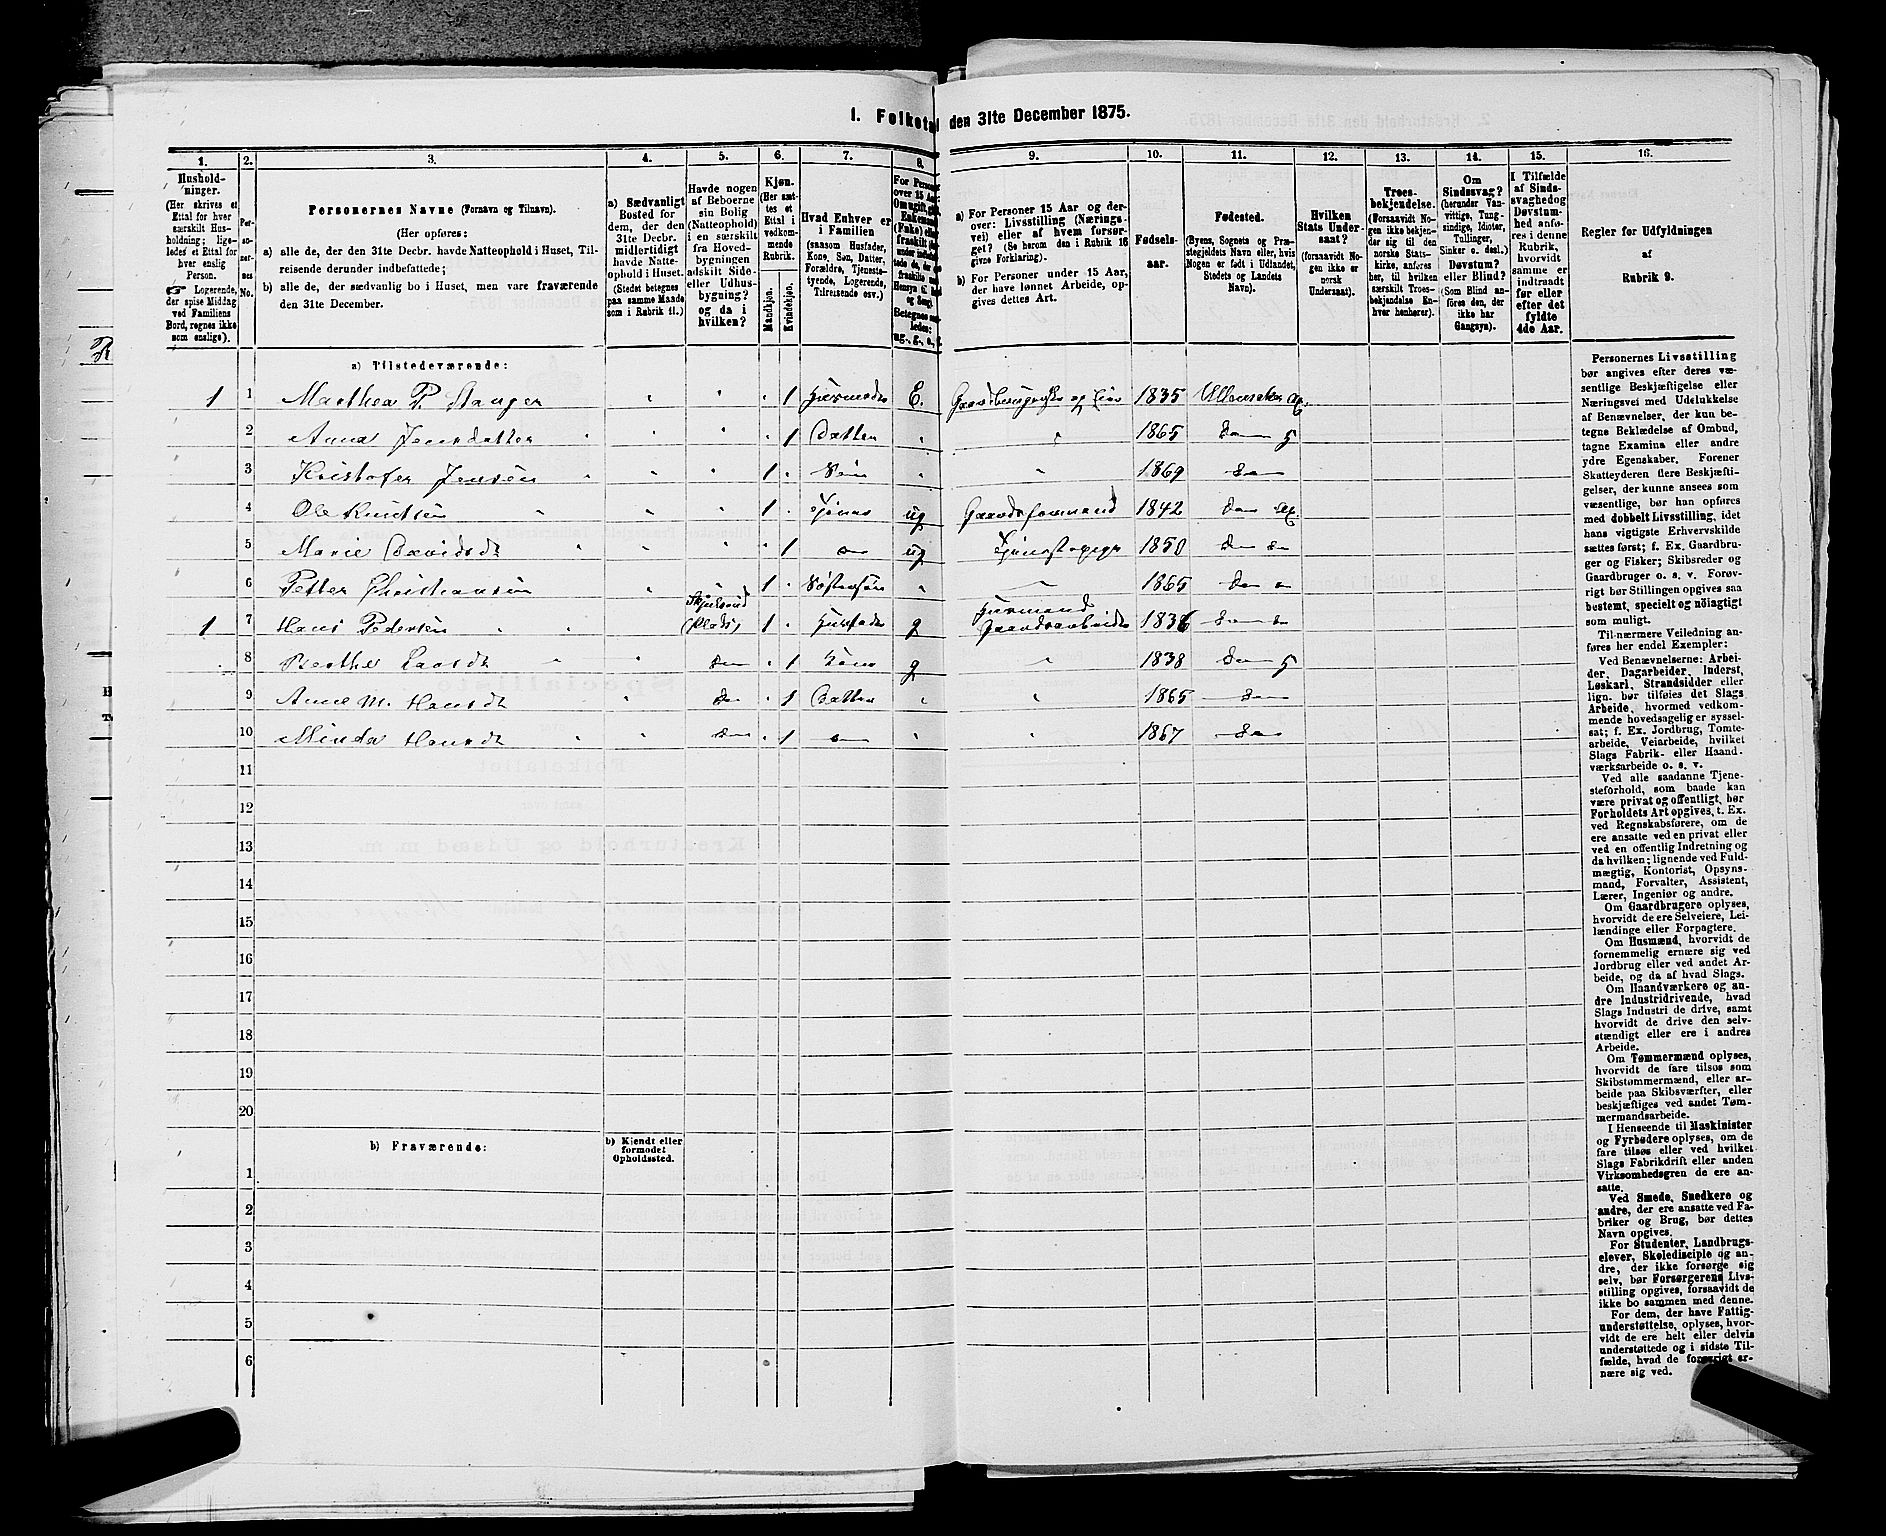 1. Folketal den 31te December 1875.
1. 2. 3. 4. 5. 6. 7. 8. 9. 10. 11. 12. 13. 14. 15. 16.
Hushold-
ninger.
(Her skrives et
Ettal for hver
særskilt Hus-
holdning; lige-
ledes et Ettal for
hver enslig
Person.
☛ Logerende,
der spise Middag
ved Familiens
Bord, regnes ikke
som enslige).
Per-
so-
ner-
nes
No.
Personernes Navne (Fornavn og Tilnavn).
(Her opføres:
a) alle de, der den 31te Decbr. havde Natteophold i Huset, Til-
reisende derunder indbefattede;
b) alle de, der sædvanlig bo i Huset, men vare fraværende
den 31te December.
a) Sædvanligt
Bosted for
dem, der den
31te Decbr.
midlertidigt
havde Natte-
ophold i Huset.
(Stedet betegnes
paa samme Maade
som i Rubrik 11.)
Havde nogen
af Beboerne
sin Bolig
(Natteophold)
i en særskilt
fra Hoved-
bygningen
adskilt Side-
eller Udhus-
bygning?
og da i
hvilken?
Kjøn.
(Her sæt-
tes et
Ettal i
vedkom-
mende
Rubrik.
Mandkjøn.
Kvindekjøn.
Hvad Enhver er
i Familien
(saasom Husfader,
Kone, Søn, Datter,
Forældre, Tjeneste-
tyende, Logerende,
Tilreisende osv.)
For Personer
over 15 Aar:
a) For Personer 15 Aar og der-
over: Livsstilling (Nærings-
vei) eller af hvem forsør-
get? (Se herom den i Rubrik 16
givne Forklaring).
b) For Personer under 15 Aar,
der have lønnet Arbeide, op-
gives dettes Art.
Fødsels-
aar.
Fødested.
(Byens, Sognets og Præ-
stegjeldets Navn eller, hvis
Nogen er født i Udlandet,
Stedets og Landets
Navn).
Hvilken
Stats Under-
saat?
(forsaavidt No-
gen ikke er
norsk
Undersaat).
Troes-
bekjendelse.
(Forsaavidt No-
gen ikke bekjen-
der sig til den
norske Stats-
kirke, anføres
her, til hvilken
særskilt Troes-
bekjendelse En-
hver henhører).
Om
Sindssvag?
(herunder Van-
vittige, Tung-
sindige, Idioter,
Tullinger,
Sinker o. desl.)
Døvstum?
eller Blind?
(Som Blind an-
føres den, der
ikke har
Gangsyn).
I Tilfælde
af Sinds-
svaghed og
Døvstum-
hed anfø-
res i denne
Rubrik,
hvorvidt
samme er
indtraadt
før eller
efter det
fyldte
4de Aar.
Regler for Udfyldningen
af
Rubrik 9.
a) Tilstedeværende:
1 1 Marthea P. Stanger " " " 1 Husmoder E. Gaardbrugerske og 1835 Ullensaker
2 Anne Jensdatter " " " " 1 Datter " " 1865 5
3 Kristofer Jensen " " " 1 " Søn " " 1869
4 Ole Knudsen " " " 1 " Tjener ug Gaardsformand 1842
5 Marie Davidsdt " " " " 1 ug Tjenestepige 1850
6 Petter Christiansen " 1 " Søstersøn " " 1865
1 7 Hans Pedersen " " (Plads) 1 " Husfader g Husmand Gaardsarbeider 1836
8 Berthe Larsdt " " " 1 Kone g " 1838 5
9 Anne M. Hansdt " " 1 Datter " " 1865
10 Minda Hansdt " " " 1 " " 1867
11
12
13
14
15
16
17
18
19
20
b) Fraværende:
b) Kjendt eller
formodet
Opholdssted.
1
2
3
4
5
6
Personernes Livsstilling
bør angives efter deres væ-
sentlige Beskjæftigelse eller
Næringsvei med Udelukkelse
af Benævnelser, der kun be-
tegne Beklædelse af Ombud,
tagne Examina eller andre
ydre Egenskaber. Forener
Skatteyderen flere Beskjæfti-
gelser, der kunne ansees som
væsentlige, bør han opføres
med dobbelt Livsstilling, idet
hans vigtigste Erhvervskilde
sættes først; f. Ex. Gaardbru-
ger og Fisker; Skibsreder og
Gaardbruger o. s. v. Forøv-
rigt bør Stillingen opgives saa
bestemt, specielt og nøiagtigt
som muligt.
Til nærmere Veiledning an-
føres her endel Exempler:
Ved Benævnelserne: Arbei-
der, Dagarbeider, Inderst,
Løskarl, Strandsidder eller
lign. bør tilføies det Slags
Arbeide, hvormed vedkom-
mende hovedsagelig er syssel-
sat; f. Ex. Jordbrug, Tomte-
arbeide, Veiarbeide, hvilket
Slags Fabrik- eller Haand-
værksarbeide o. s. v.
Ved alle saadanne Tjene-
steforhold, som baade kan
være privat og offentligt, bør
Forholdets Art opgives, t. Ex.
ved Regnskabsførere, om de
ere ansatte ved en privat eller
ved en offentlig Indretning og
da hvilken; lignende ved Fuld-
mægtig, Kontorist, Opsyns-
mand, Forvalter, Assistent,
Lærer, Ingeniør og andre.
Om Gaardbrugere oplyses,
hvorvidt de ere Selveiere, Lei-
lændinge eller Forpagtere.
Om Husmænd, hvorvidt de
fornemmelig ernære sig ved
Jordbrug eller ved andet Ar-
beide, og da af hvad Slags.
Om Haandværkere og an-
dre Industridrivende, hvad
Slags Industri de drive, samt
hvorvidt de drive den selv-
stændigt eller ere i andres
Arbeide.
Om Tømmermænd oplyses,
hvorvidt de fare tilsøs som
Skibstømmermænd, eller ar-
beide paa Skibsværfter, eller
beskjæftiges ved andet Tøm-
mermandsarbeide.
I Henseende til Maskinister
og Fyrbødere oplyses, om de
fare tilsøs eller ved hvilket
Slags Fabrikdrift eller anden
Virksomhedsgren de ere an-
satte.
Ved Smede, Snedkere og
andre, der ere ansatte ved Fa-
briker og Brug, bør dettes
Navn opgives.
For Studenter, Landbrugs-
elever, Skoledisciple og an-
dre, der ikke forsørge sig
selv, bør Forsørgerens Livs-
stilling opgives, forsaavidt de
ikke bo sammen med denne.
For dem, der have Fattig-
understøttelse, oplyses, hvor-
vidt de ere helt eller delvis
understøttede og i sidste Til-
fælde, hvad de forøvrigt er-
nære sig ved.